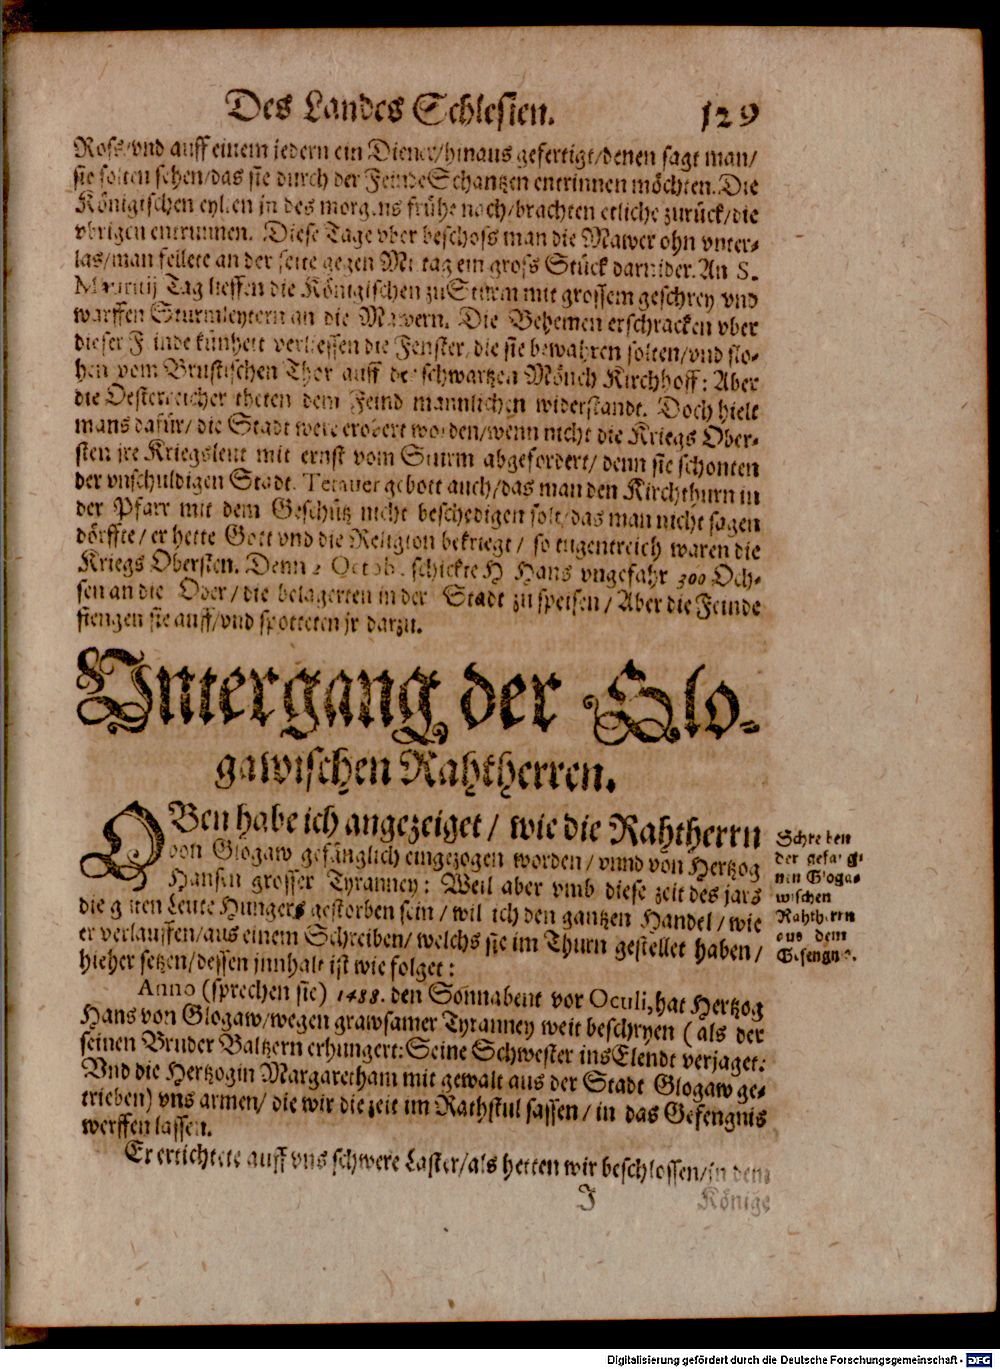 Des Landes Schlesien. 129
Ross/vnd auff einem jedern ein Diener/hinaus gefertigt/denen sagt man/
sie solten sehen/das sie durch der Feinde Schantzen entrinnen möchten. Die
Königischen eyleten jn des morgens frühe nach/brachten etliche zurück/die
vbrigen entrunnen. Diese Tage vber beschoss man die Mawer ohn vnter-
las/man fellete an der seite gegen Mittag ein gross Stück darnider. An S.
Tag lieffen die Königischen zu Sturm mit grossem geschrey vnd
warffen Sturmleytern an die Mawern. Die Behemen erschracken vber
dieser Feinde künheit verliessen die Fenster, die sie bewahren solten/vnd flo-
hen vom Brustischen Thor auff der schwartzen Mönch Kirchhoff: Aber
die Oesterreicher theten dem Feind mannlichen widerstandt. Doch hielt
mans dafür/ die Stadt were erobert worden/wenn nicht die Kriegs Ober-
sten jre Kriegsleut mit ernst vom Sturm abgefordert/ denn sie schonten
der vnschuldigen Stadt. Tetauer gebott auch/das man den Kirchthurn in
der Pfarr mit dem Geschütz nicht beschedigen solt/das man nicht sagen
dörffte/ er hette Gott vnd die Religion bekriegt/ so tugentreich waren die
Kriegs Obersten. Denn 2 Octob. schickte H Hans vngefahr 300 Och-
sen an die Oder/ die belagerten in der Stadt zu speisen/ Aber die Feinde
fiengen sie auff/vnd spotteten jr darzu.
Vntergang der Glo-
gawischen Rahtherren.
OBen habe ich angezeiget/ wie die Rahtherrn
von Glogaw gefänglich eingezogen worden/ vnnd von Hertzog
Hansen grosser Tyranney: Weil aber vmb diese zeit des jars
die guten Leute Hungers gestorben sein/ wil ich den gantzen Handel/ wie
er verlauffen/aus einem Schreiben/ welchs sie im Thurn gestellet haben/
hieher setzen/dessen jnnhalt ist wie folget:
Schreiben
der gefangenen Gloga-
wischen
Rahtherrn
aus dem
Gefengnis.
Anno (sprechen sie) 1488. den Sonnabent vor Oculi, hat Hertzog
Hans von Glogaw/wegen grawsamer Tyranney weit beschryen (als der
seinen Bruder Baltzern erhungert: Seine Schwester ins Elendt verjaget:
Vnd die Hertzogin Margaretham mit gewalt aus der Stadt Glogaw ge-
trieben) vns armen/ die wir die zeit im Rathstul sassen/ in das Gefengnis
werffen lassen.
Er ertichtete auff vns schwere Laster/als hetten wir beschlossen/in dem
J Könige
Digitalisierung gefördert durch die Deutsche Forschungsgemeinschaft - DFG